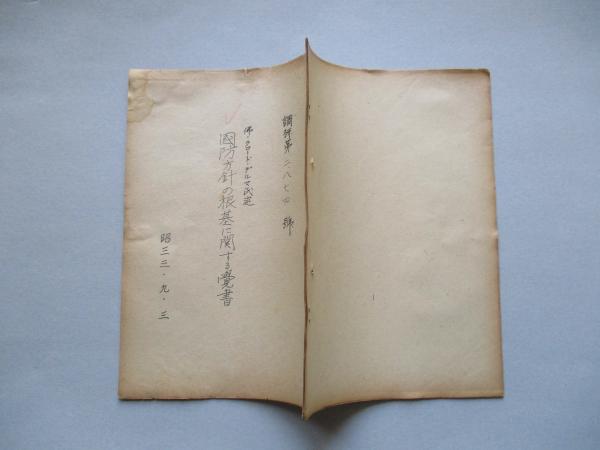 調研第二八七四號
佛・クロード・デルマ氏述
國防方針の根基に関する覺書
昭三三・九・三